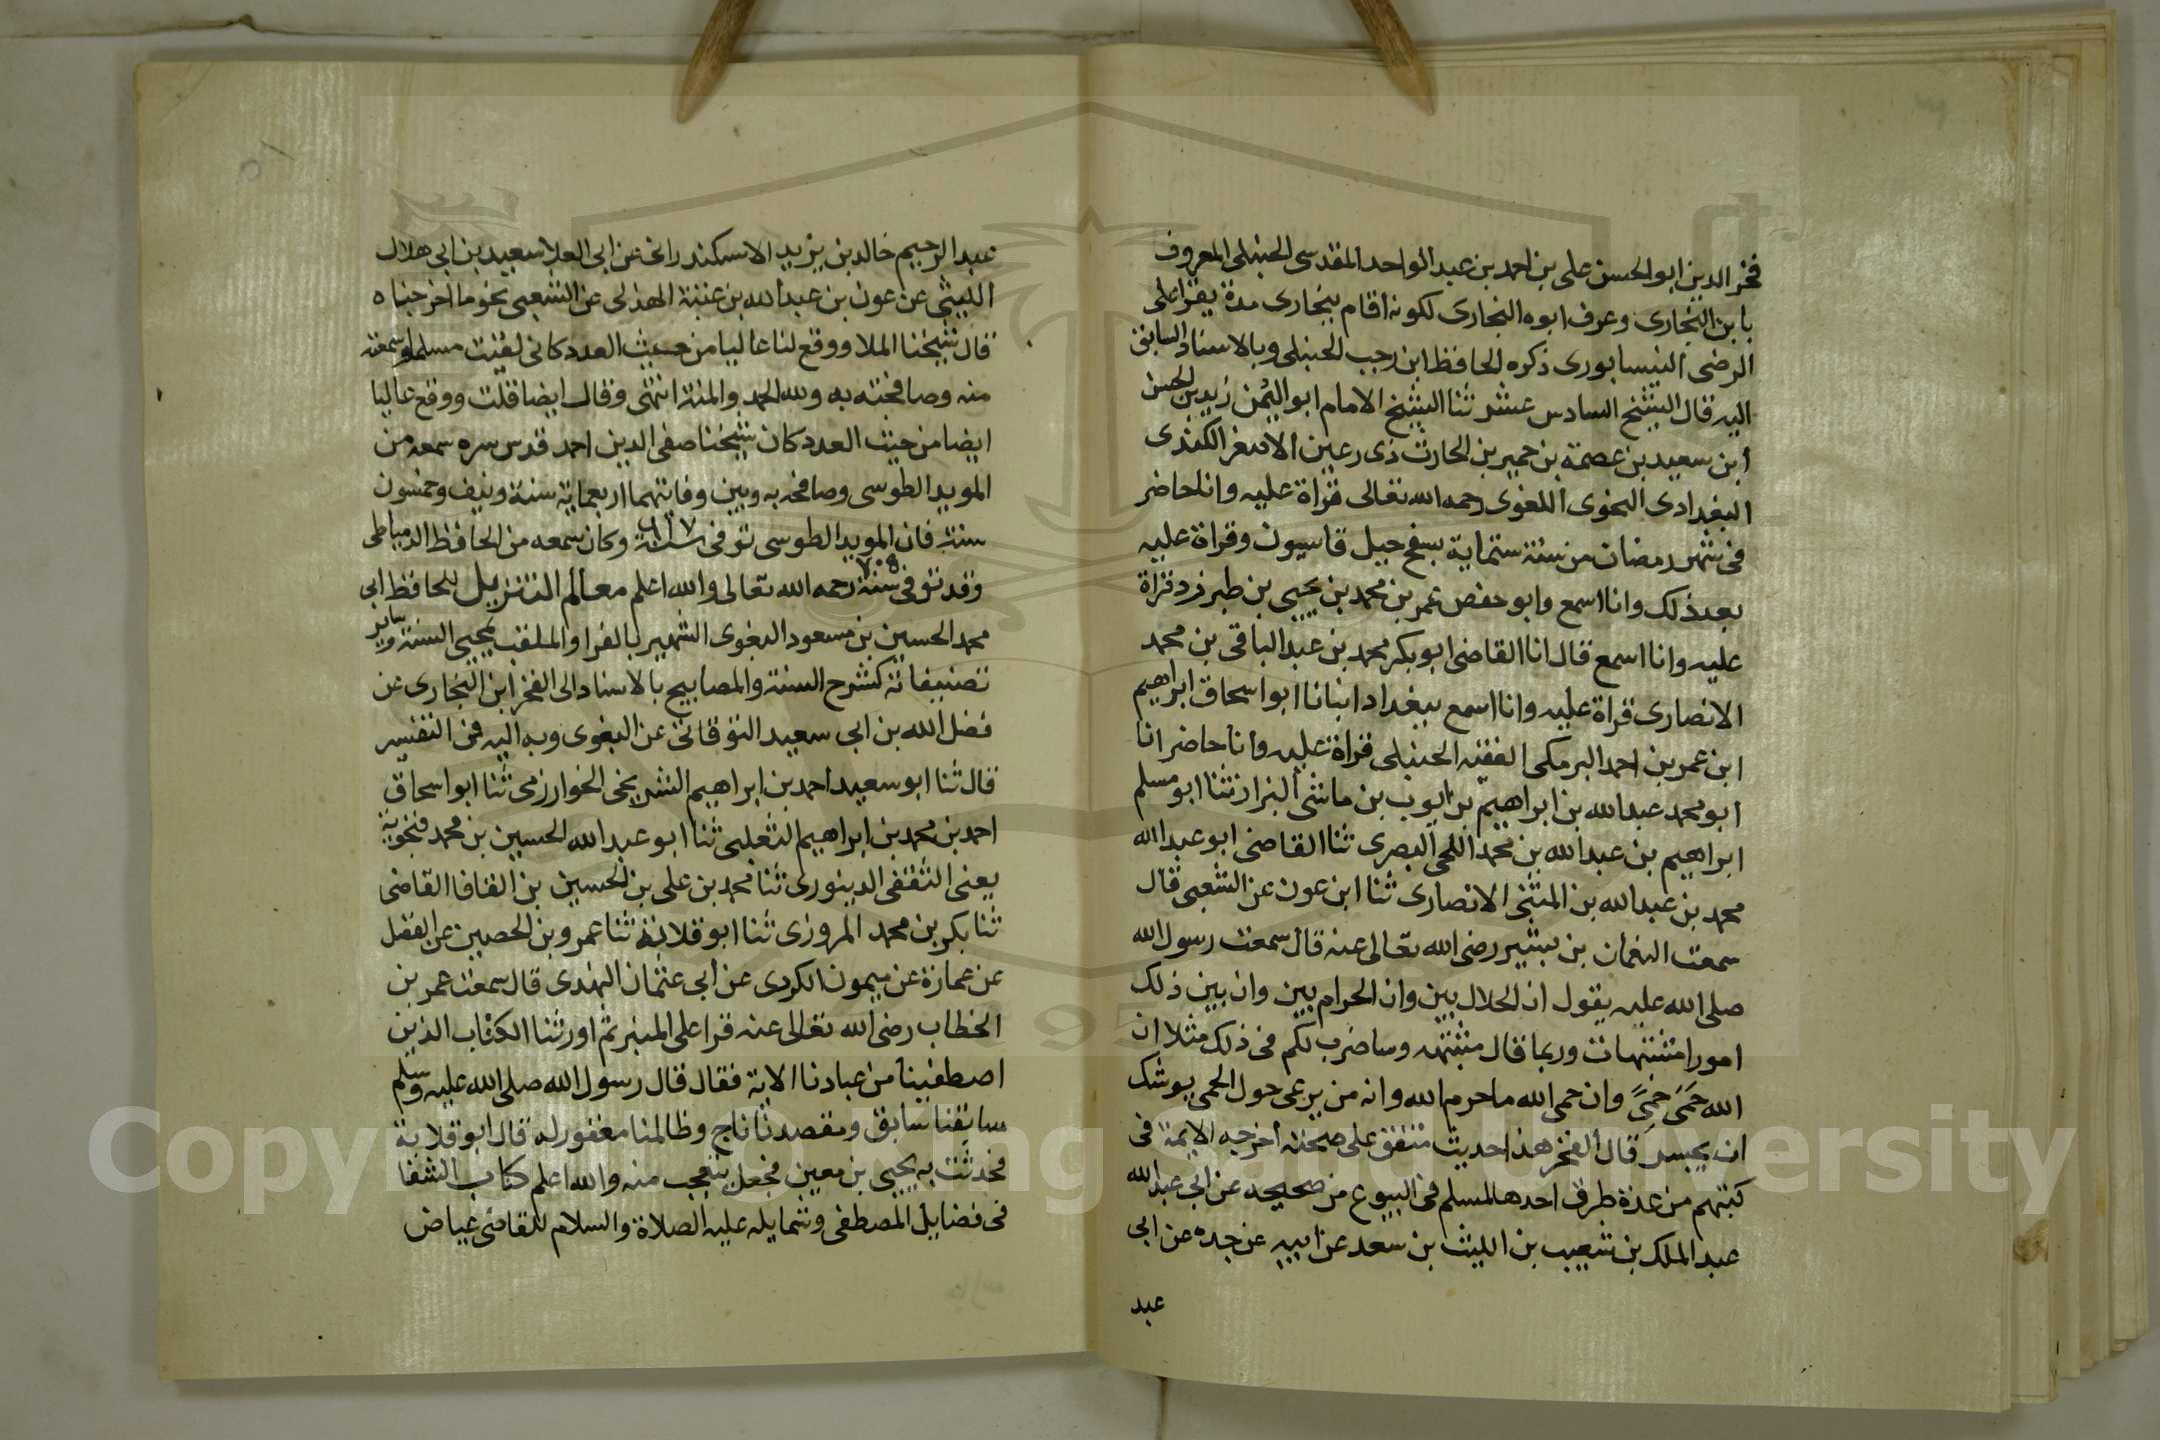 فخر الدين ابو الحسن على بن احمد بن عبد الواحد المقدسى الحنبلى المعروف
بابن البخارى وعرف ابوه البخارى لكونه اقام ببخارى مدة يقرا على
الرضى النيسابورى ذكره الحافظ ابن رجب الحنبلى وبالاسناد السابق
اليه قال الشيخ السادس عشر ثنا الشيخ الامام ابو اليُمن زيد بن الحسن
ابن سعيد بن عصمة بن حمير بن الحارث ذى رعين الاصغر الكندى
البغدادى النحوى اللغوى رحمه الله تعالى قراة عليه وانا حاضر
فى شهر رمضان من سنة ستماية بسفح جبل قاسيون وقراة عليه
بعد ذلك وانا اسمع وابو حفص عمر بن محمد بن يحيى بن طبرزد قراة
عليه وانا اسمع قال انا القاضى ابو بكر محمد بن عبد الباقى بن محمد
الانصارى قراة عليه وانا اسمع ببغداد انبانا ابو اسحاق ابراهيم
ابن عمر بن احمد البرمكى الفقيه الحنبلى قراة عليه وانا حاضر انا
ابو محمد عبد الله بن ابراهيم بن ايوب بن ماشى البزاز ثنا ابو مسلم
ابراهيم بن عبد الله بن محمد اللجى البصرى ثنا القاضى ابو عبد الله
محمد بن عبد الله بن المثنى الانصارى ثنا ابن عون عن الشعبى قال
سمعت النعمان بن بشير رضى الله تعالى عنه قال سمعت رسول الله
صلى الله عليه يقول ان الحلال بين وان الحرام بين وان بين ذلك
امورا مشتبهات وربما قال مشتبه وساضرب لكم فى ذلك مثلا ان
الله حَمَى حِمىً وان حمى الله ما حرم الله وانه من يرعى حول الحمى يوشك
ان يجسر قال الفخر هذا حديث متفق على صحته اخرجه الايمة فى
كتبهم من عدة طرق احدها لمسلم فى البيوع من صحيحه عن ابى عبد الله
عبد الملك بن شعيب بن الليث بن سعد عن ابيه عن جده عن ابى
عبد
عبد الرحيم خالد بن يزيد الاسكندرانى عن ابى العلا سعيد بن ابى هلال
الليثى عن عون بن عبد الله بن عتبة الهذلى عن الشعبى نحو ما اخرجناه
قال شيخنا الملا ووقع لنا عاليا من حيث العدد كانى لقيت مسلما وسمعته
منه وصافحته به ولله الحمد والمنة انتهى وقال ايضا قلت ووقع عاليا
ايضا من حيث العدد كان شيخنا صفى الدين احمد قدس سره سمعه من
المويد الطوسى وصافحه به وبين وفاتهما اربعماية سنة ونيف وخمسون
سنة فان المويد الطوسى توفى سنة ٦١٧ وكان سمعه من الحافظ الدمياطى
وقد توفى سنة ٧٠٥ رحمه الله تعالى والله اعلم معالم التنزيل للحافظ ابى
محمد الحسين بن مسعود البغوى الشهير بالفرا والملقب بمحيى السنة وساير
تصنيفاته كشرح السنة والمصابيح بالاسناد الى الفخر ابن البخارى عن
فضل الله بن ابى سعيد النوقانى عن البغوى وبه اليه فى التفسير
قال ثنا ابو سعيد احمد بن ابراهيم الشريحى الخوارزمى ثنا ابو اسحاق
احمد بن محمد بن ابراهيم الثعلبى ثنا ابو عبد الله الحسين بن محمد فنجوية
يعنى الثقفى الدينورى ثنا محمد بن على بن الحسين بن الفافا القاضى
ثنا بكر بن محمد المروزى ثنا ابو قلابة ثنا عمرو بن الحصين عن الفضل
عن عمارة عن ميمون الكردى عن ابى عثمان النهدى قال سمعت عمر بن
الخطاب رضى الله تعالى عنه قرا على المنبر ثم اورثنا الكتاب الذين
اصطفينا من عبادنا الاية فقال قال رسول الله صلى الله عليه وسلم
سابقنا سابق ومقصدنا ناج وظالمنا مغفور له قال ابو قلابة
فحدثت به يحيى بن معين فجعل يتعجب منه والله اعلم كتاب الشفا
فى فضايل المصطفى وشمايله عليه الصلاة والسلام للقاضى عياض
Copyright © King Saud University